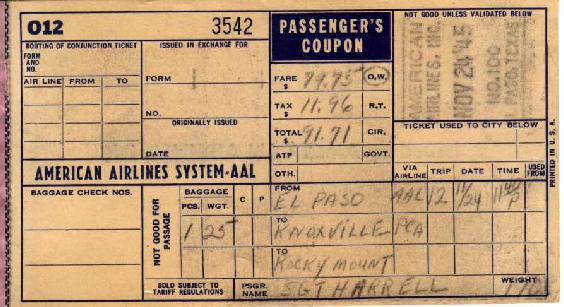 012 3542
PASSENGER'S COUPON
NOT GOOD UNLESS VALIDATED BELOW
AMERICAN AIRLINES, INC.
NOV 24 '45
NO. 100
TEXAS
ROUTING OF CONJUNCTION TICKET
FORM AND NO.
AIR LINE FROM TO
ISSUED IN EXCHANGE FOR
FORM
NO.
ORIGINALLY ISSUED
DATE
FARE $ 79.75 O.W.
TAX $ 11.96 R.T.
TOTAL $ 91.71 CIR.
ATP GOVT.
OTH.
TICKET USED TO CITY BELOW
PRINTED IN U.S.A.
AMERICAN AIRLINES SYSTEM-AAL
VIA AIRLINE TRIP DATE TIME USED FROM
BAGGAGE CHECK NOS.
NOT GOOD FOR PASSAGE
BAGGAGE
PCS. WGT. C P
1 25
FROM EL PASO AAL 12 11/24
TO KNOXVILLE PCA
TO ROCKY MOUNT
SOLD SUBJECT TO TARIFF REGULATIONS
PSGR. NAME SGT HARRELL
WEIGHT